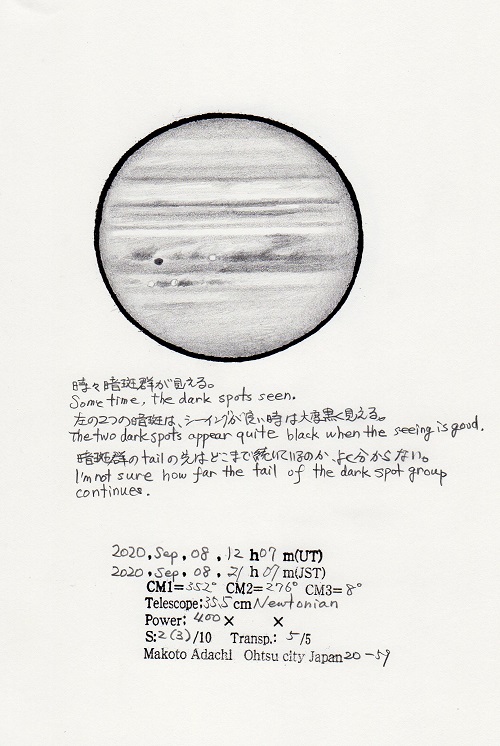 時々暗斑群が見える。
Some time, the dark spots seen.
左の2つの暗斑は、シーイングが良い時は大変黒く見える。
The two dark spots appear quite black when the seeing is good.
暗斑群のtailの先はどこまで続いているのか、よく分からない。
I'm not sure how far the tail of the dark spot group
continues.
2020, Sep, 08, 12 h 07 m(UT)
2020, Sep, 08, 21 h 07 m(JST)
CM1=352° CM2=276° CM3=8°
Telescope:35.5cm Newtonian
Power: 400× ×
S:2(3)/10 Transp.: 5/5
Makoto Adachi Ohtsu city Japan 20-59